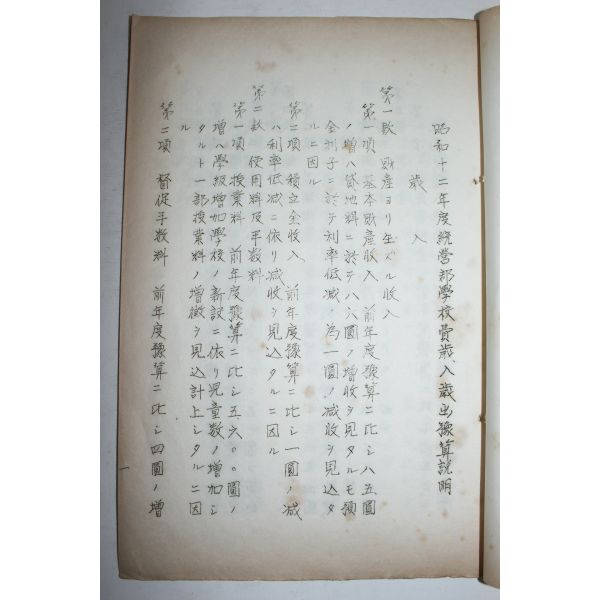 昭和十二年度統營郡學校費歳入歳出豫算説明
歳入
第一款 財産ヨリ生ズル收入
第一項 基本財産收入 前年度豫算ニ比シ八五圓
ノ增ハ貸地料ニ於テ八六圓ノ增收ヲ見タルモ預
金利子ニ於テ利率低減ノ為一圓ノ減收ヲ見込タ
ルニ因ル
第二項 積立金收入 前年度豫算ニ比シ一圓ノ減
ハ利率低減ニ依リ減收ヲ見込タルニ因ル
第二款 使用料及手數料
第一項 授業料 前年度豫算ニ比シ五六〇〇圓ノ
增ハ學級增加學校ノ新設ニ依リ児童數ノ增加シ
タルト一部授業料ノ增徴ヲ見込計上シタルニ因
ル
第二項 督促手數料 前年度豫算ニ比シ四圓ノ增